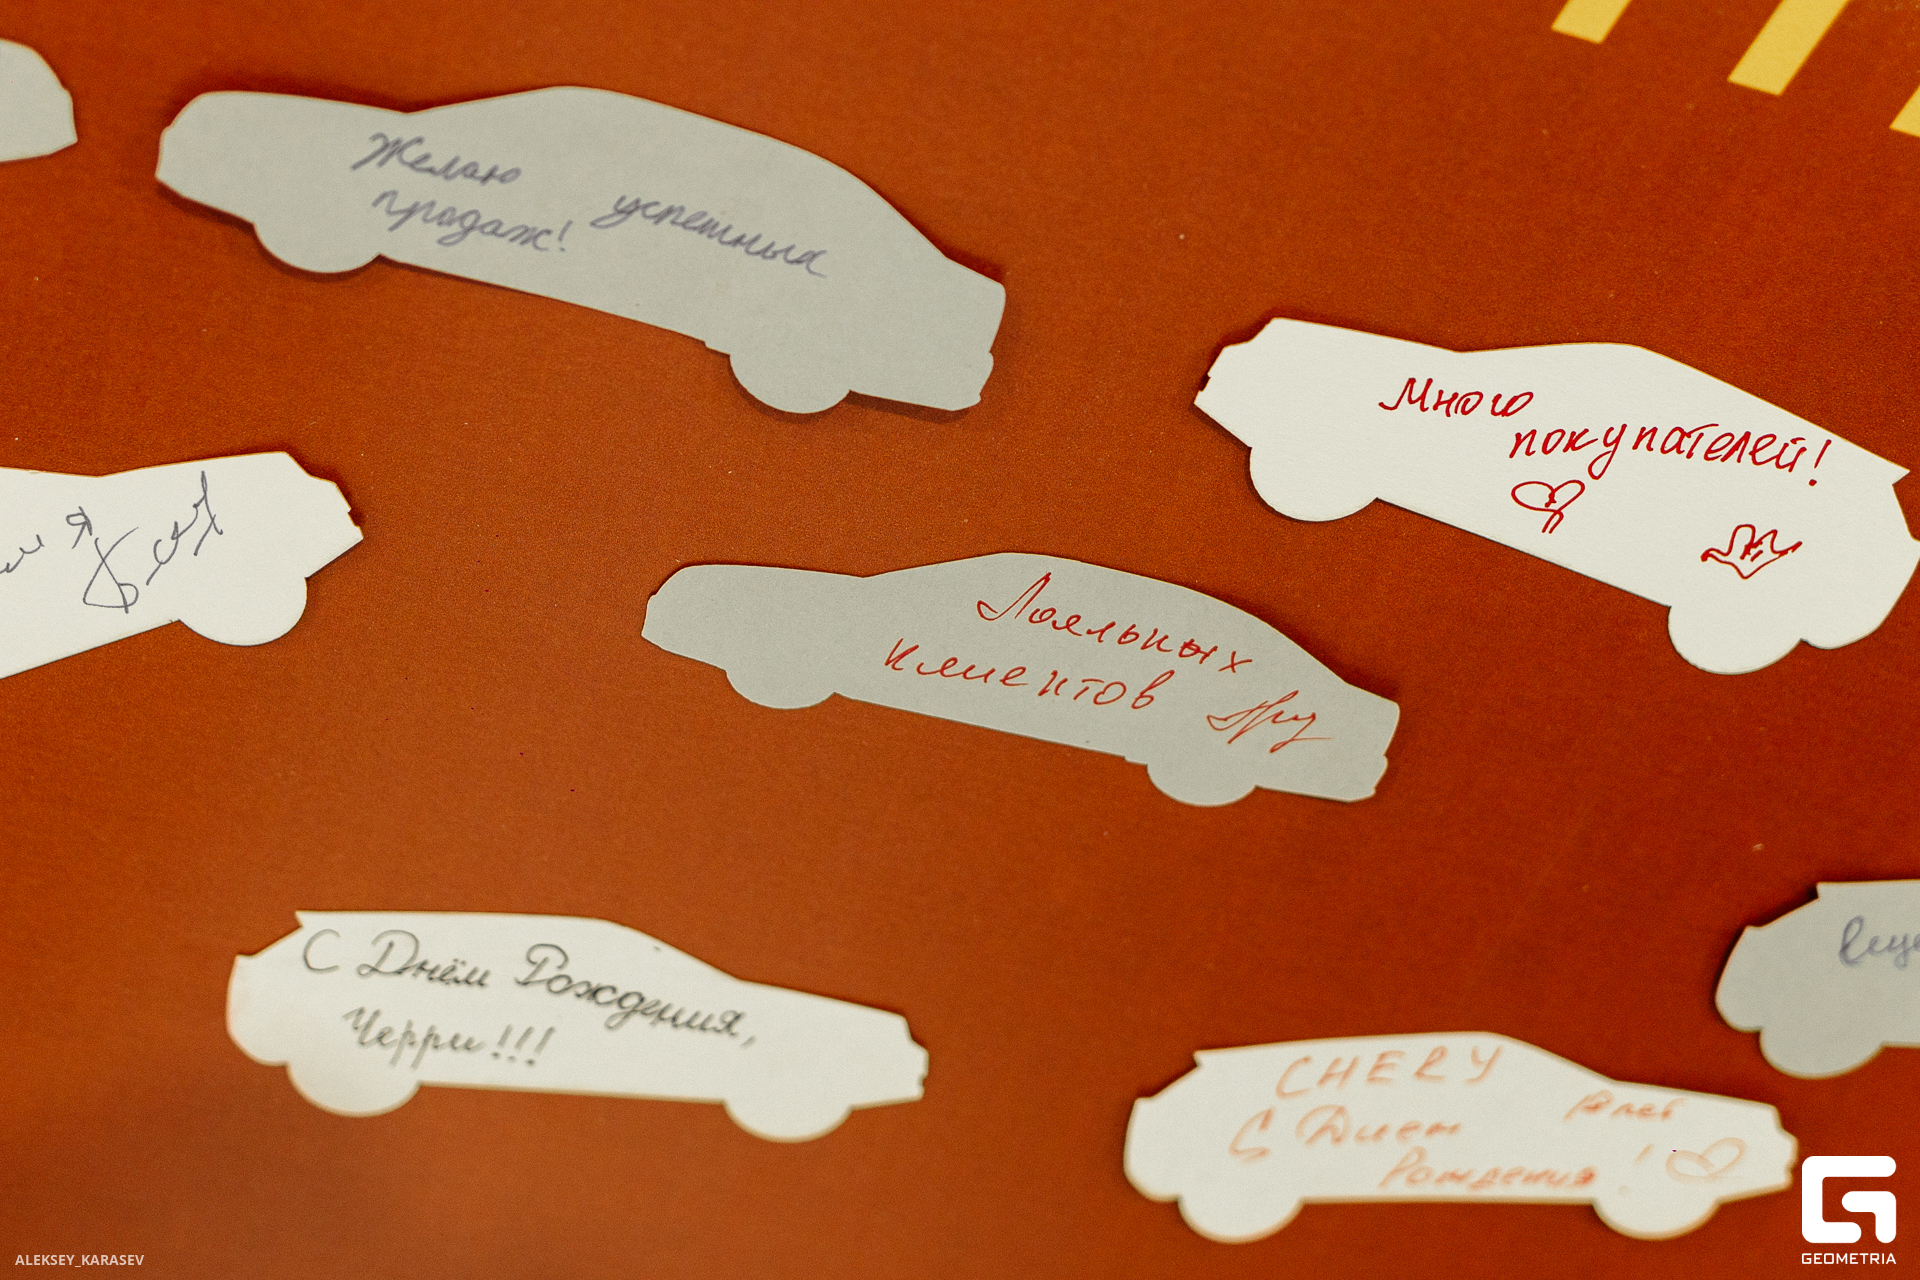 Желаю успешных
продаж!
Много
покупателей!
я
Лояльных
клиентов
С Днём Рождения,
Черри!!!
CHERY
лет
С Днем
Рождения!
ALEKSEY_KARASEV
GEOMETRIA